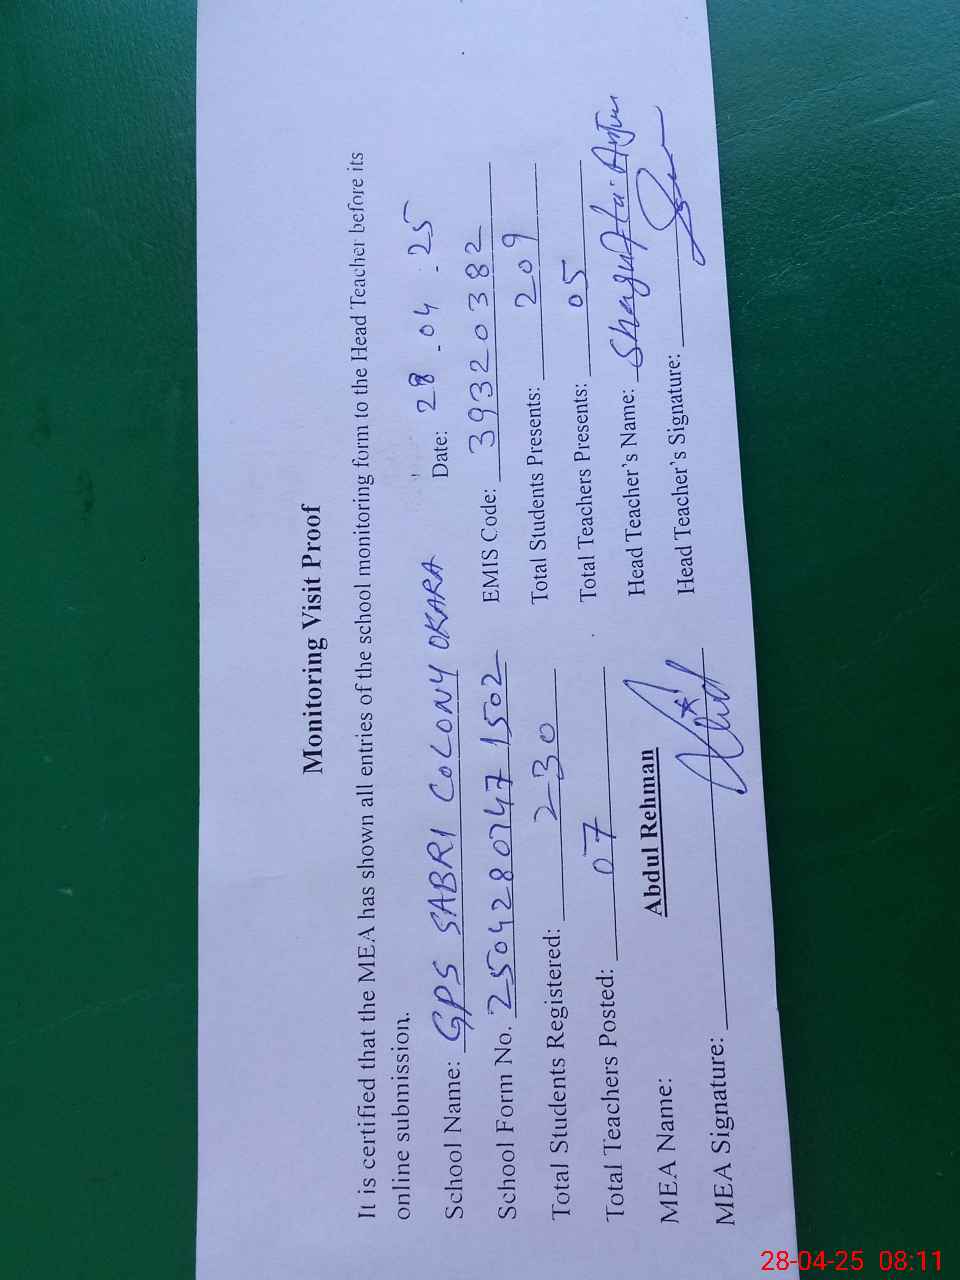 Monitoring Visit Proof
It is certified that the MEA has shown all entries of the school monitoring form to the Head Teacher before its
online submission.
School Name: GPS SABRI COLONY OKARA Date: 28.04.25
School Form No. 25042807471502 EMIS Code: 39320382
Total Students Registered: 230 Total Students Presents: 209
Total Teachers Posted: 07 Total Teachers Presents: 05
MEA Name: Abdul Rehman Head Teacher's Name: Shagufta Anjum
MEA Signature: Head Teacher's Signature:
28-04-25 08:11